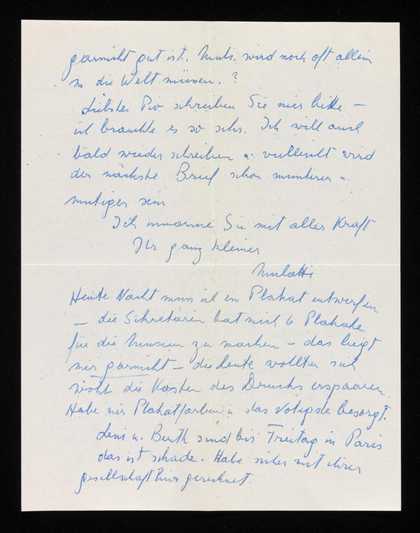 garnicht gut ist. Muts. wird noch oft allein
in die Welt müssen.?
Liebster Pio schreiben Sie mir bitte –
ich brauche es so sehr. Ich will auch
bald wieder schreiben u. vielleicht wird
der nächste Brief schon munterer u.
mutiger sein
Ich umarme Sie mit aller Kraft
Ihr ganz kleiner
Heute Nacht muss ich ein Plakat entwerfen
– die Sekretärin hat mich 6 Plakate
für die zu machen – das liegt
mir garnicht – die Leute wollten sich
die Kosten des Drucks ersparen.
Habe mir Plakatfarben u. das Nötigste besorgt.
u. Berth sind bis Freitag in Paris
das ist schade. Habe mit ihrer
gesellschaft hier gerechnet